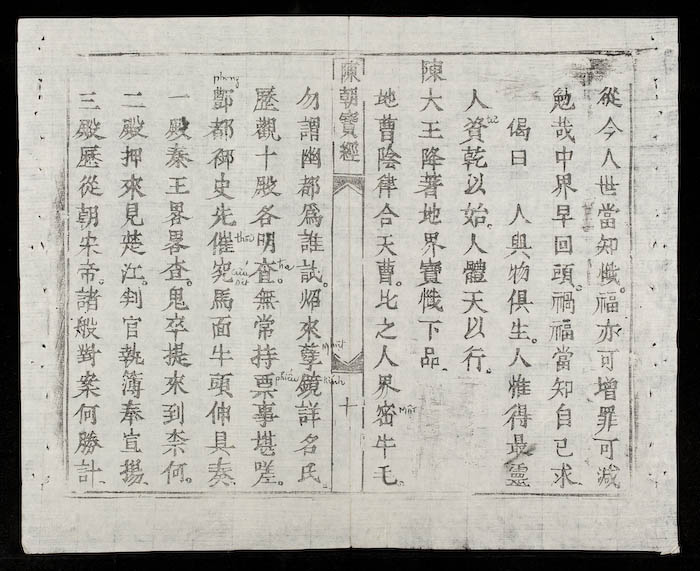 從今人世當知懺。福亦可增罪可減
勉哉中界早回頭。禍福當知自己求
偈曰 人與物俱生。人惟得最靈
人資乾以始。人體天以行。
陳大王降著地界寶懺下品
地曹陰律合天曹。比之人界密牛毛。
Mật
陳朝寶經 十
勿謂幽都爲誰試。炤來孽鏡詳名氏。
kính
歷觀十殿各明查。無常持票事堪嗟。
tra
phiếu
酆都御史先催究馬面牛頭伸具奏
phong
thôi
一殿秦王畧畧查。鬼卒提來到柰何。
二殿押來見楚江。判官執簿奉宣揚
三殿歷從朝宋帝。諸般對案何勝計